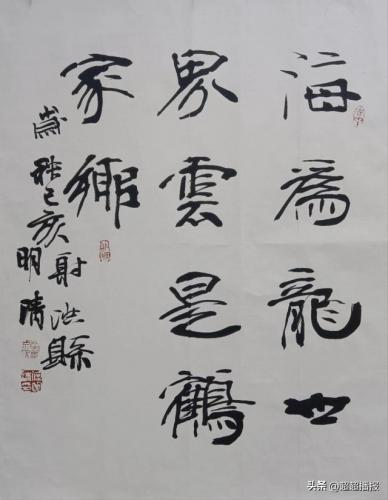 海為龍世
界雲是鶴
家鄉
射洪縣
歲己亥明清
头条 @超超播报